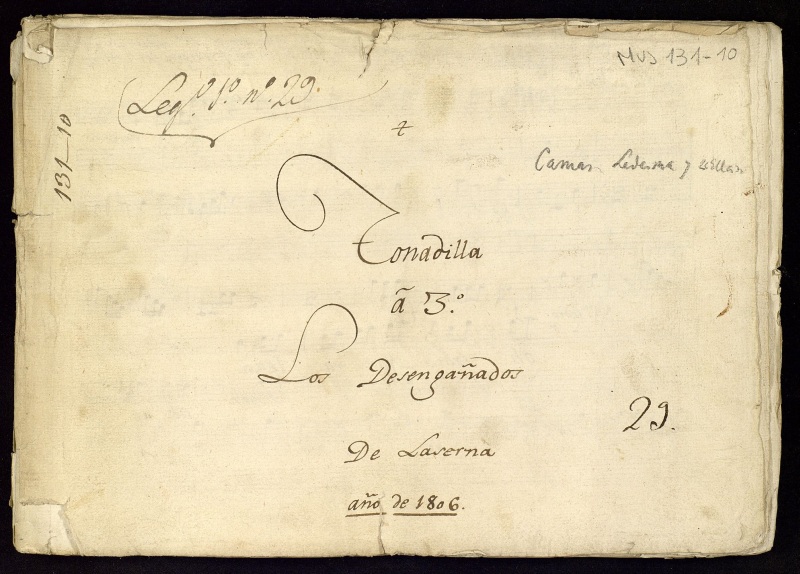 MUS 131-10
Leg.º 1.º n.º 29.
131-10
+
Camas Ledesma y
Tonadilla
â 3.º
Los Desengañados
29.
De Laserna
año de 1806.